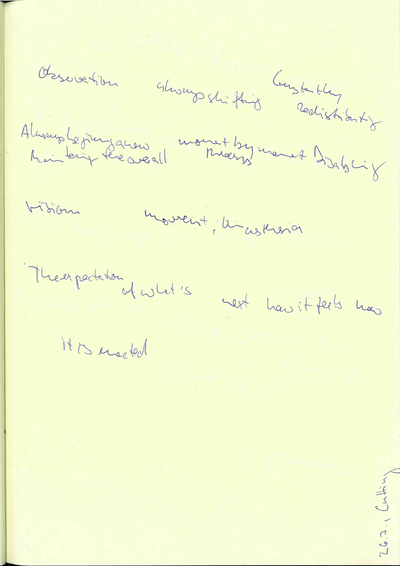 Observation always shifting Constantly
redistributing
Always beginning anew moment by moment Disabling
Monitoring the overall Process
Vision movement, kinaesthesia
The expectation
of what's next how it feels how
it is enacted
26.7., Cutting